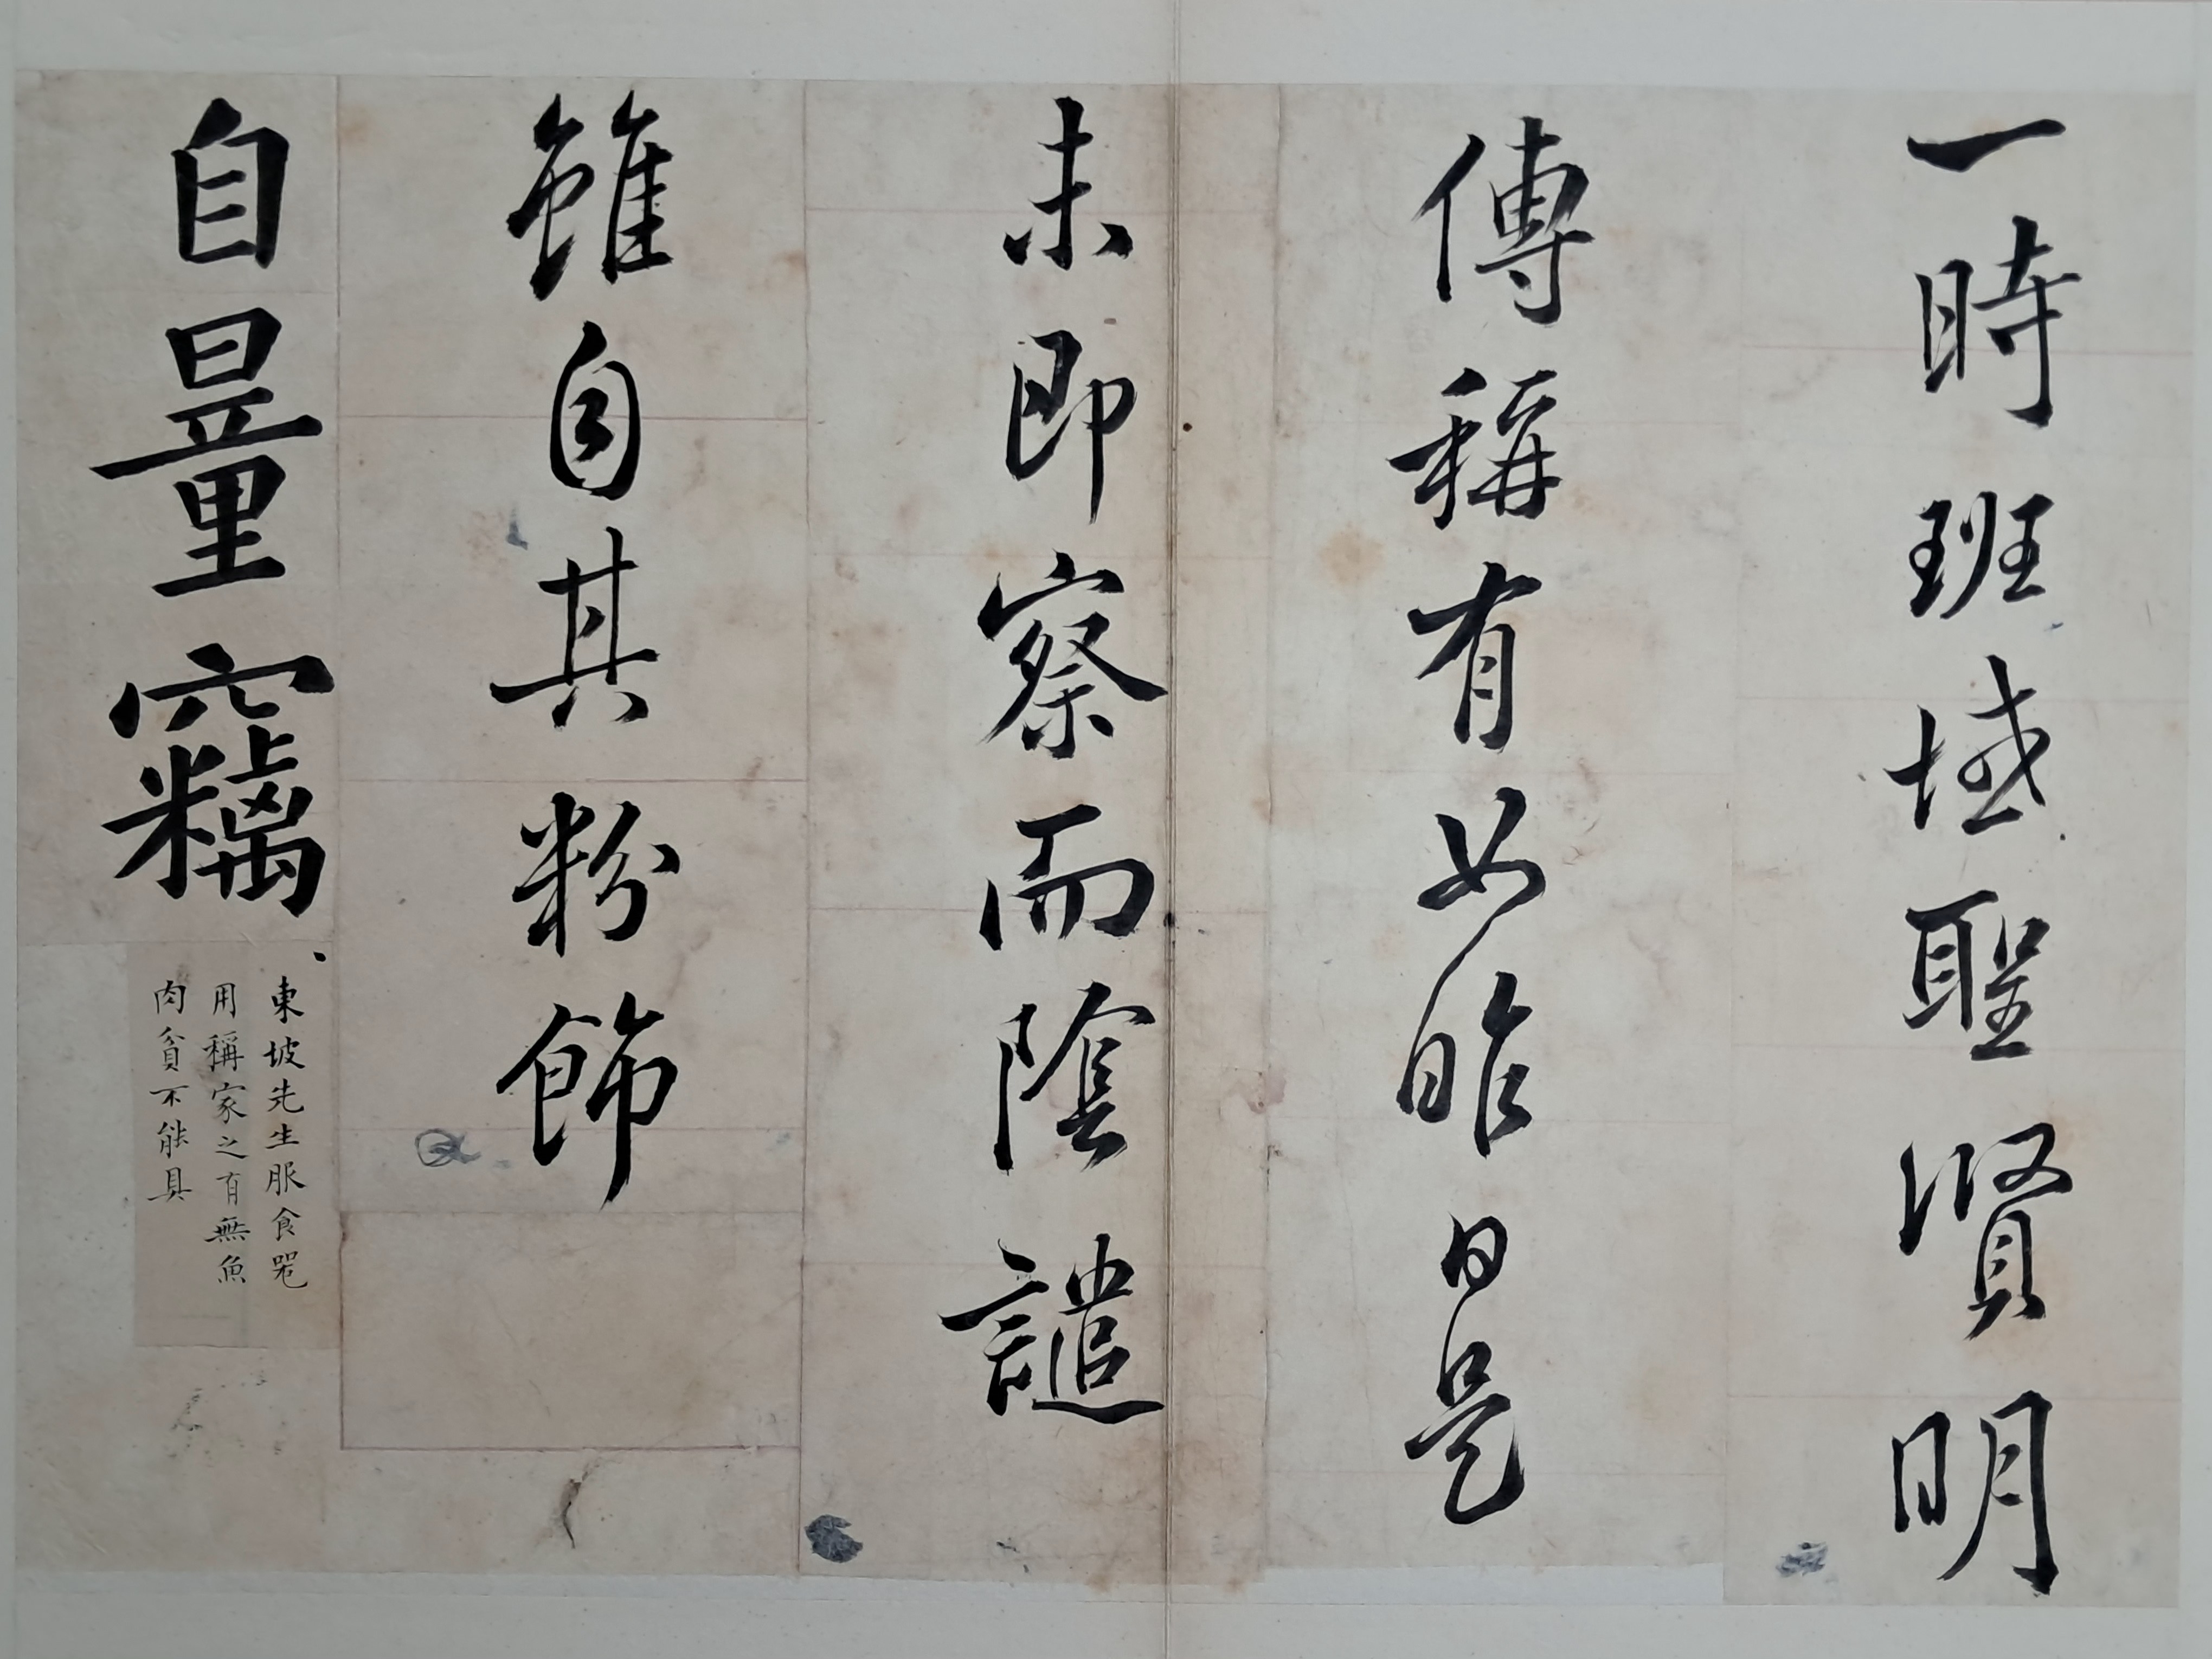 一時班域聖賢明
傳稱有如昨日是
未即察而陰譴
雖自其粉飾
自量竊
東坡先生服食器
用稱家之有無魚
肉貧不能具